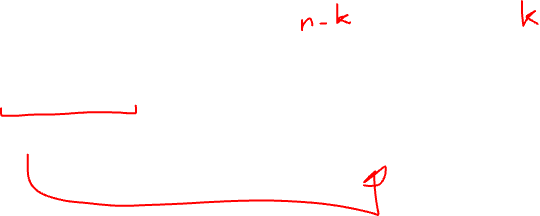 n-k k